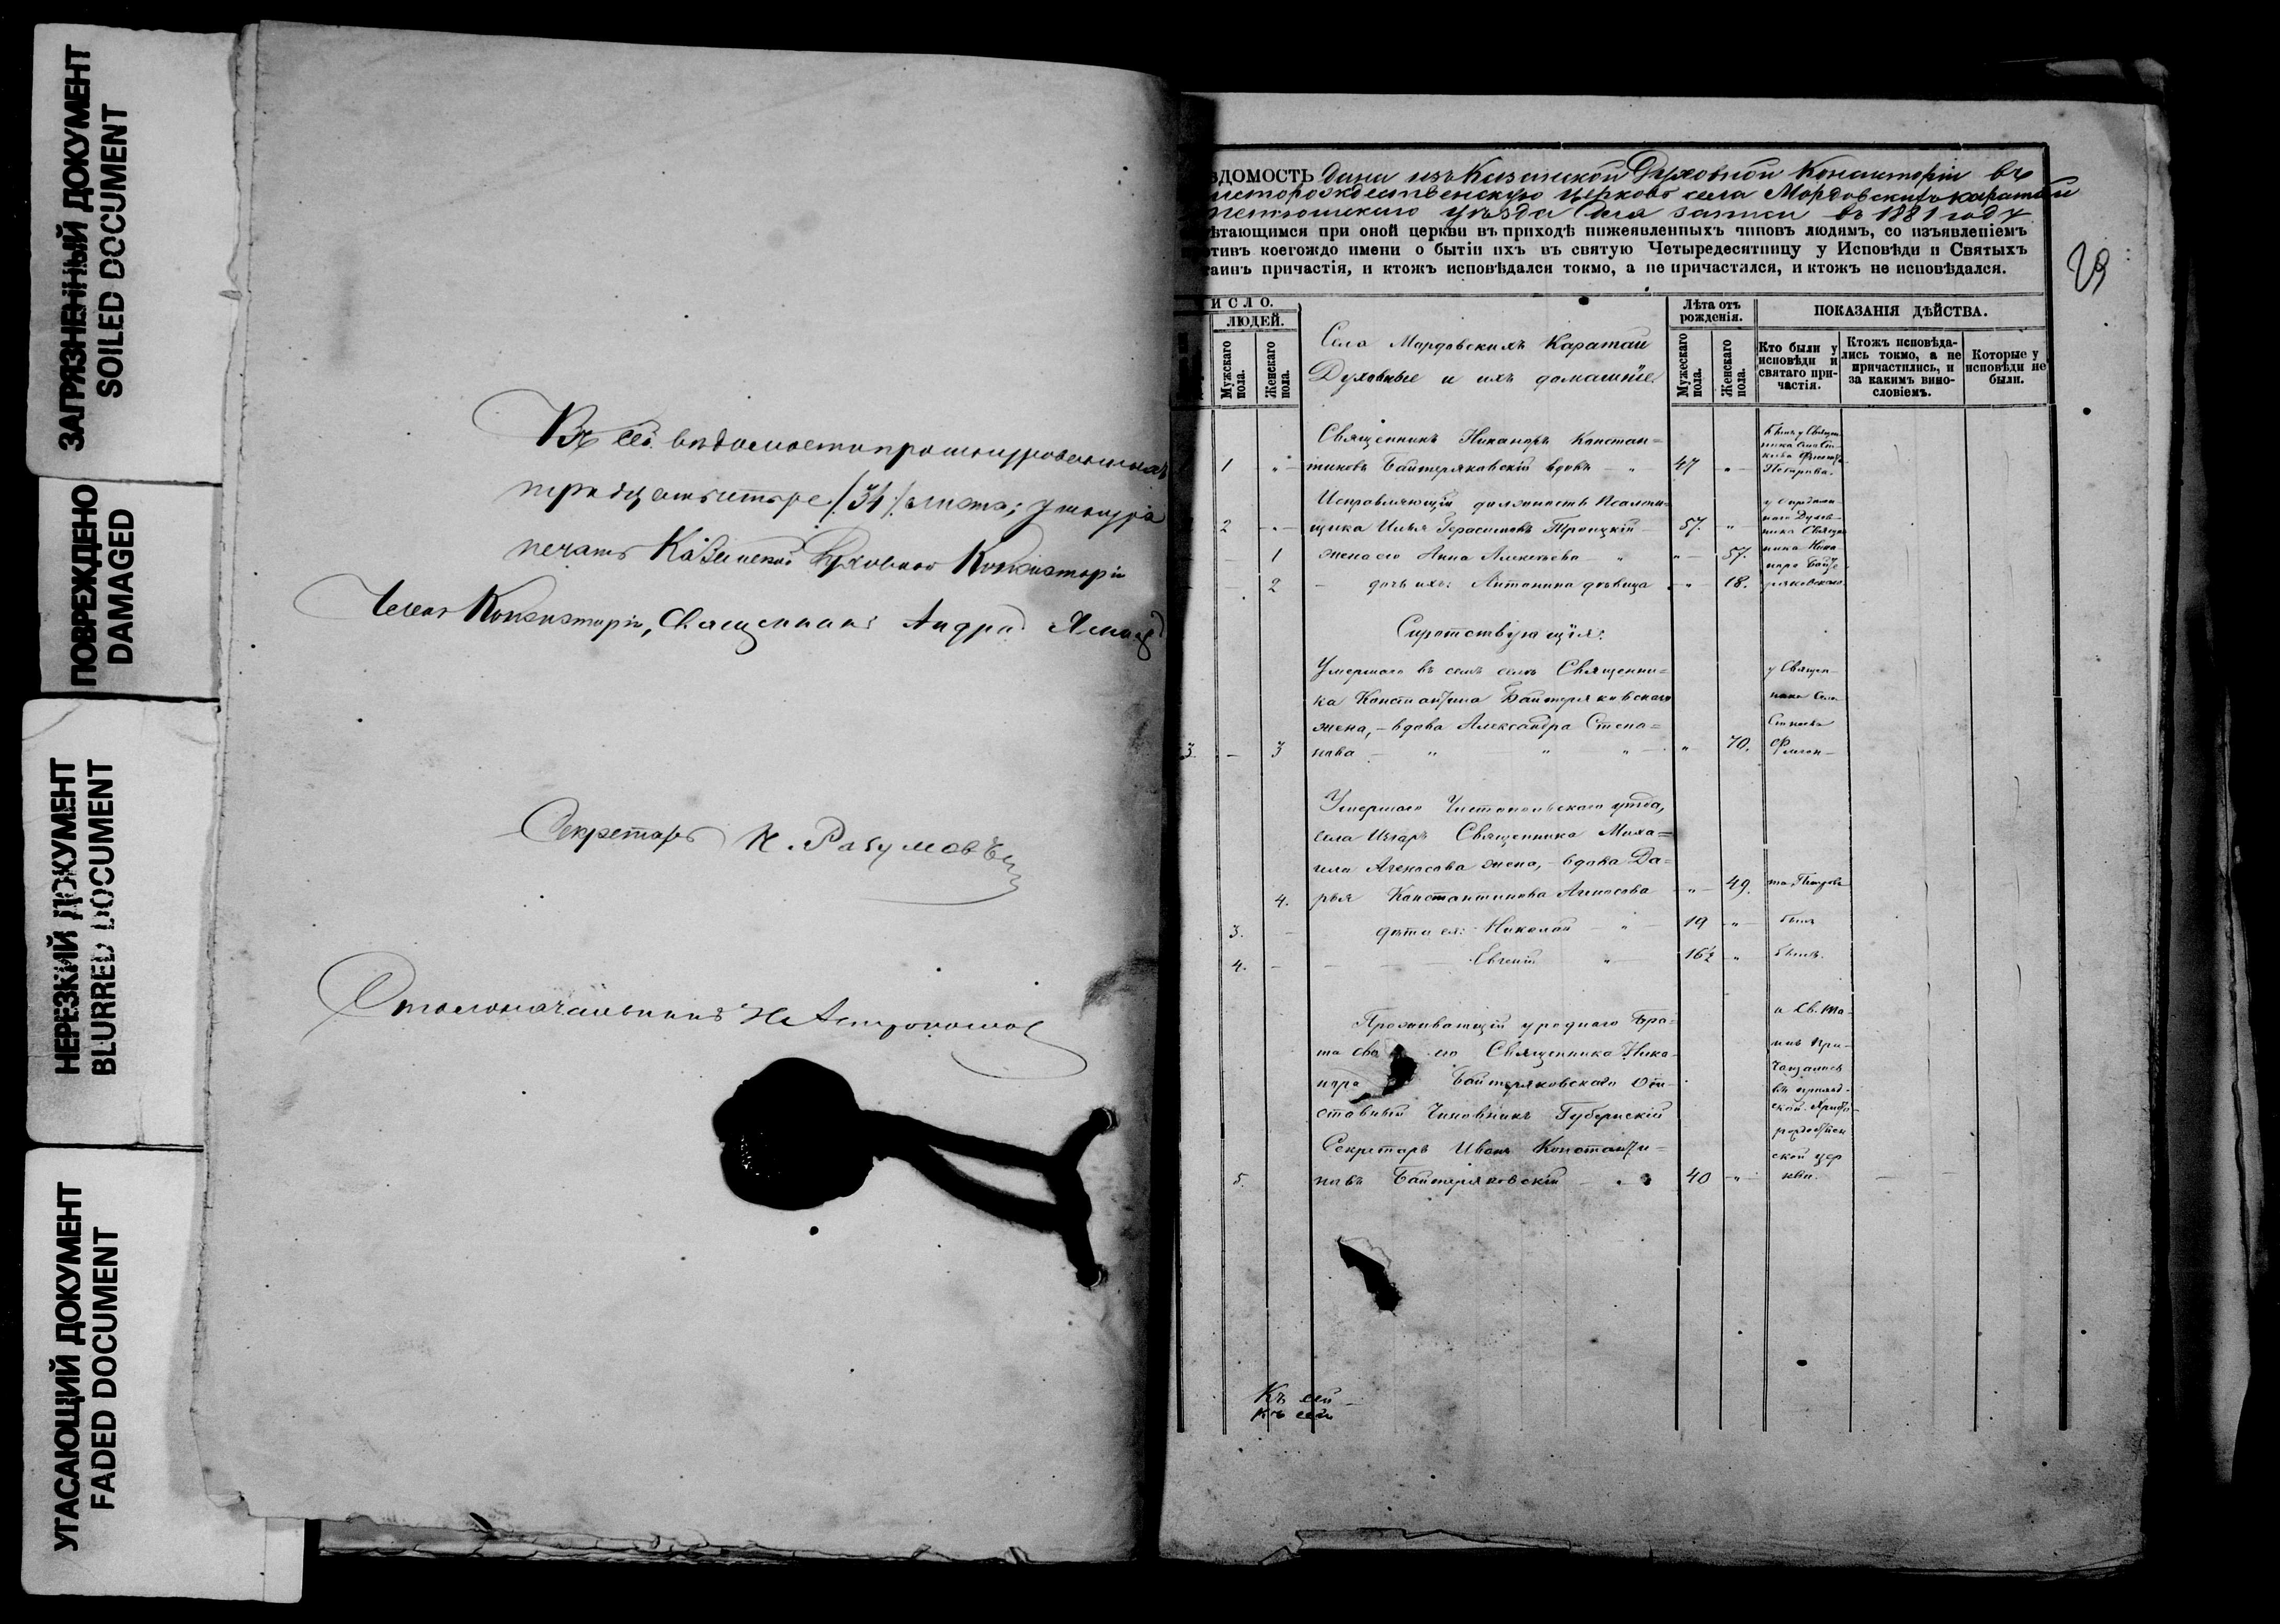 ЗАГРЯЗНЕННЫЙ ДОКУМЕНТ
SOILED DOCUMENT
ПОВРЕЖДЕНО
DAMAGED
НЕРЕЗКИЙ ДОКУМЕНТ
BLURRED DOCUMENT
УГАСАЮЩИЙ ДОКУМЕНТ
FADED DOCUMENT
Въ сей
тридцать четыре /34/ листа; у шнура
печать Казанской Духовной Консисторіи
Членъ Консисторіи, Священникъ Андрей
Секретарь Н. Разумовъ
Столоначальникъ
ѢДОМОСТЬ Дана изъ Казанской Духовной Консисторіи въ
исторождественскую церковь села Мордовскихъ каратай
тетюшскаго уѣзда для записи въ 1881 году
ѣтающимся при оной церкви въ приходѣ нижеявленныхъ чиновъ людямъ, со изъявленіемъ
отивъ коегождо имени о бытіи ихъ въ святую Четыредесятницу у Исповѣди и Святыхъ
таинъ причастія, и ктожъ исповѣдался токмо, а не причастился, и ктожъ не исповѣдался.
29
ИСЛО.
ЛЮДЕЙ.
Мужскаго пола.
Женскаго пола.
Села Мордовскихъ Каратай
Духовные и ихъ домашніе
Лѣта отъ рожденія.
Мужескаго пола.
Женскаго пола.
ПОКАЗАНІЯ ДѢЙСТВА.
Кто были у исповѣди и святаго при-частія.
Ктожъ исповѣда-лись токмо, а не причастились, и за какимъ вино-словіемъ.
Которые у исповѣди не были.
Священникъ Никаноръ Констан=
1 " тиновъ Байтеряковскій вдовъ " 47 "
Исправляющій должность Псалом=
2 - щика Илья Герасимовъ Троицкій 57. "
1 жена его Анна Алексѣева " " 57.
2 дочь ихъ: Антонина дѣвица " 18.
Сиротствующія:
Умершаго въ семъ селѣ Священни= у Священ-
ка Константина Байтеряковскаго ника села
жена, - вдова Александра Степа=
3 - 3 нова " " " " 70.
Умершаго Чистопольскаго уѣзда,
села Изгаръ Священника Миха=
ила Агносова жена, - вдова Да=
4. рья Константинова Агносова " 49.
3. - дѣти ея: Николай " 19 " былъ
4. - Евгеній " 16½ " былъ.
Проживающій у роднаго бра= и Св. Та-
та сво его Священника Ника- инъ при-
нора Байтеряковскаго От=
ставный Чиновникъ Губернскій
Секретарь Иванъ Константи= ской цер
5. новъ Байтеряковскій 40 " кви.
Къ сей
Къ сей